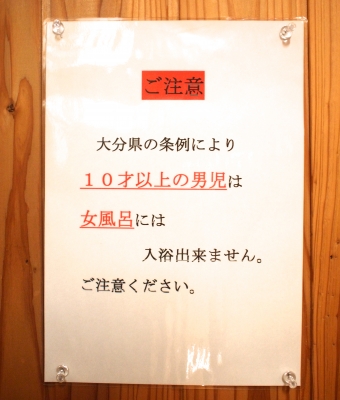 ご注意
大分県の条例により
１０才以上の男児は
女風呂には
入浴出来ません。
ご注意ください。